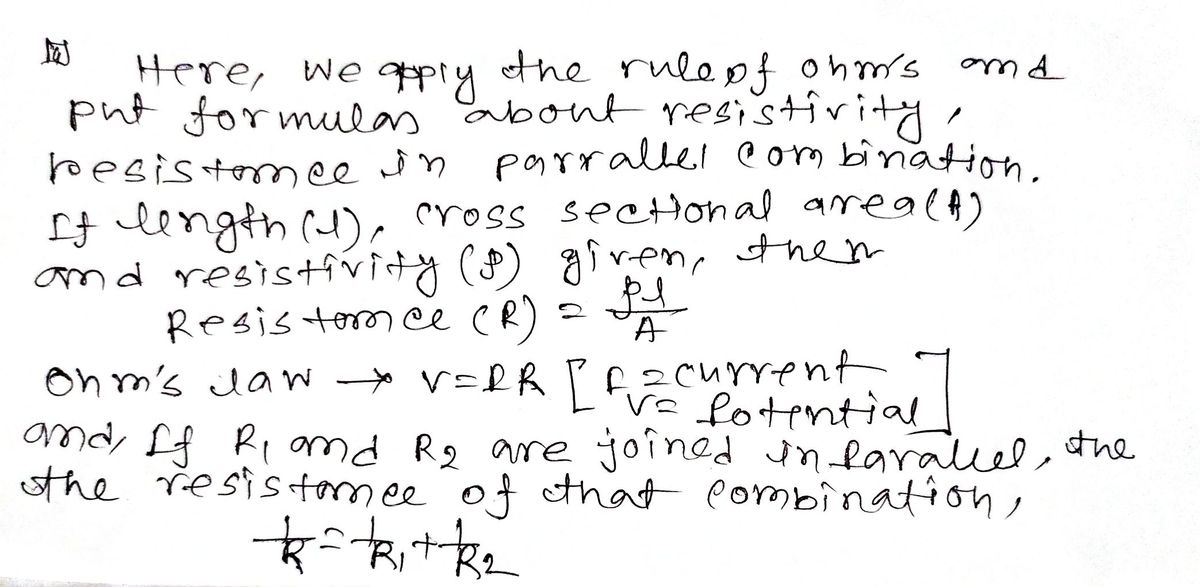 Here, we apply the rule of ohm's and
put formulas about resistivity,
resistance in parrallel combination.
If length (l), cross sectional area(A)
and resistivity (ρ) given, then
Resistance (R) = ρl/A
Ohm's law → V=IR [I=current
V= Potential]
and, If R₁ and R₂ are joined in Parallel, the
the resistance of that combination,
1/R = 1/R₁ + 1/R₂